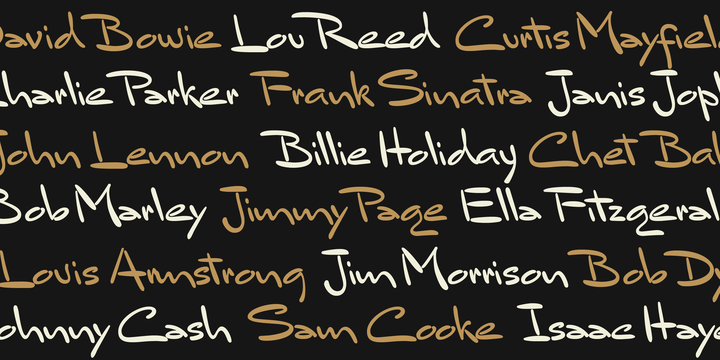 David Bowie Lou Reed Curtis Mayfiel
Charlie Parker Frank Sinatra Janis Jop
John Lennon Billie Holiday Chet Bak
Bob Marley Jimmy Page Ella Fitzgeral
Louis Armstrong Jim Morrison Bob Dy
Johnny Cash Sam Cooke Isaac Haye